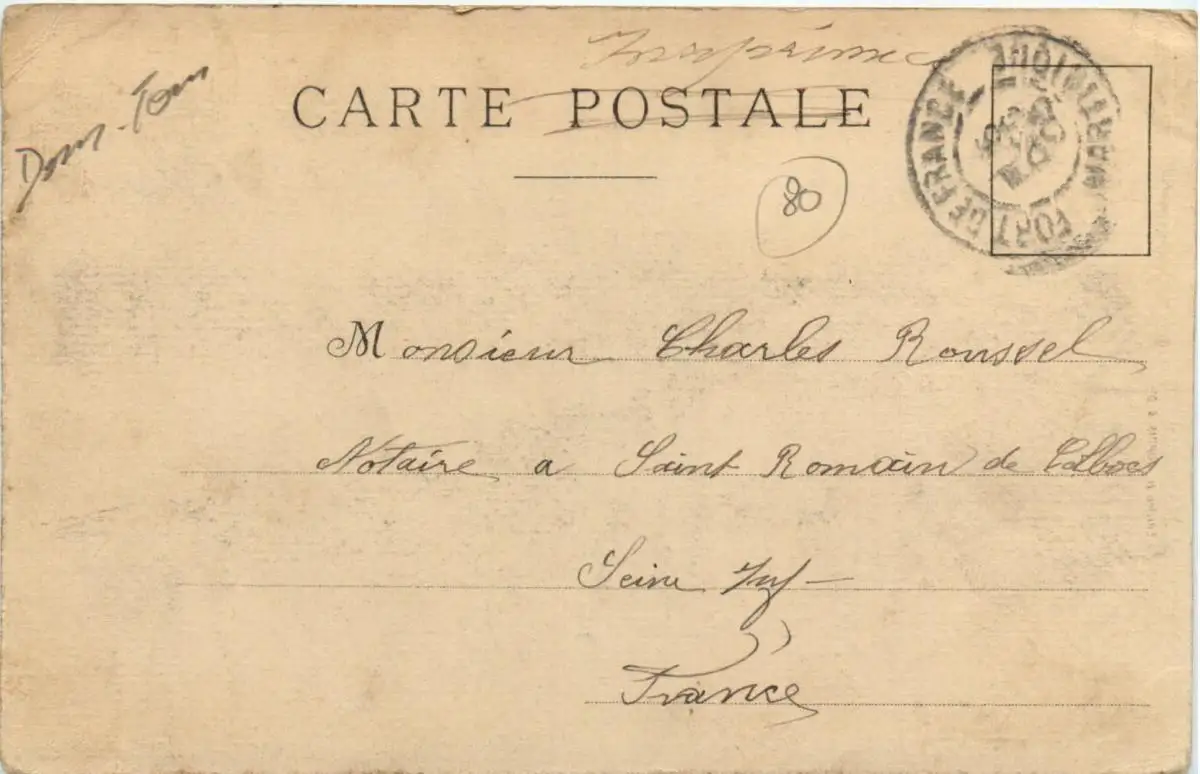 Dom-Tom
Imprimé
CARTE POSTALE
FORT DE FRANCE MARTINIQUE
80
Monsieur Charles Roussel
Notaire a Saint Romain de Colbocs
Seine Inf
France